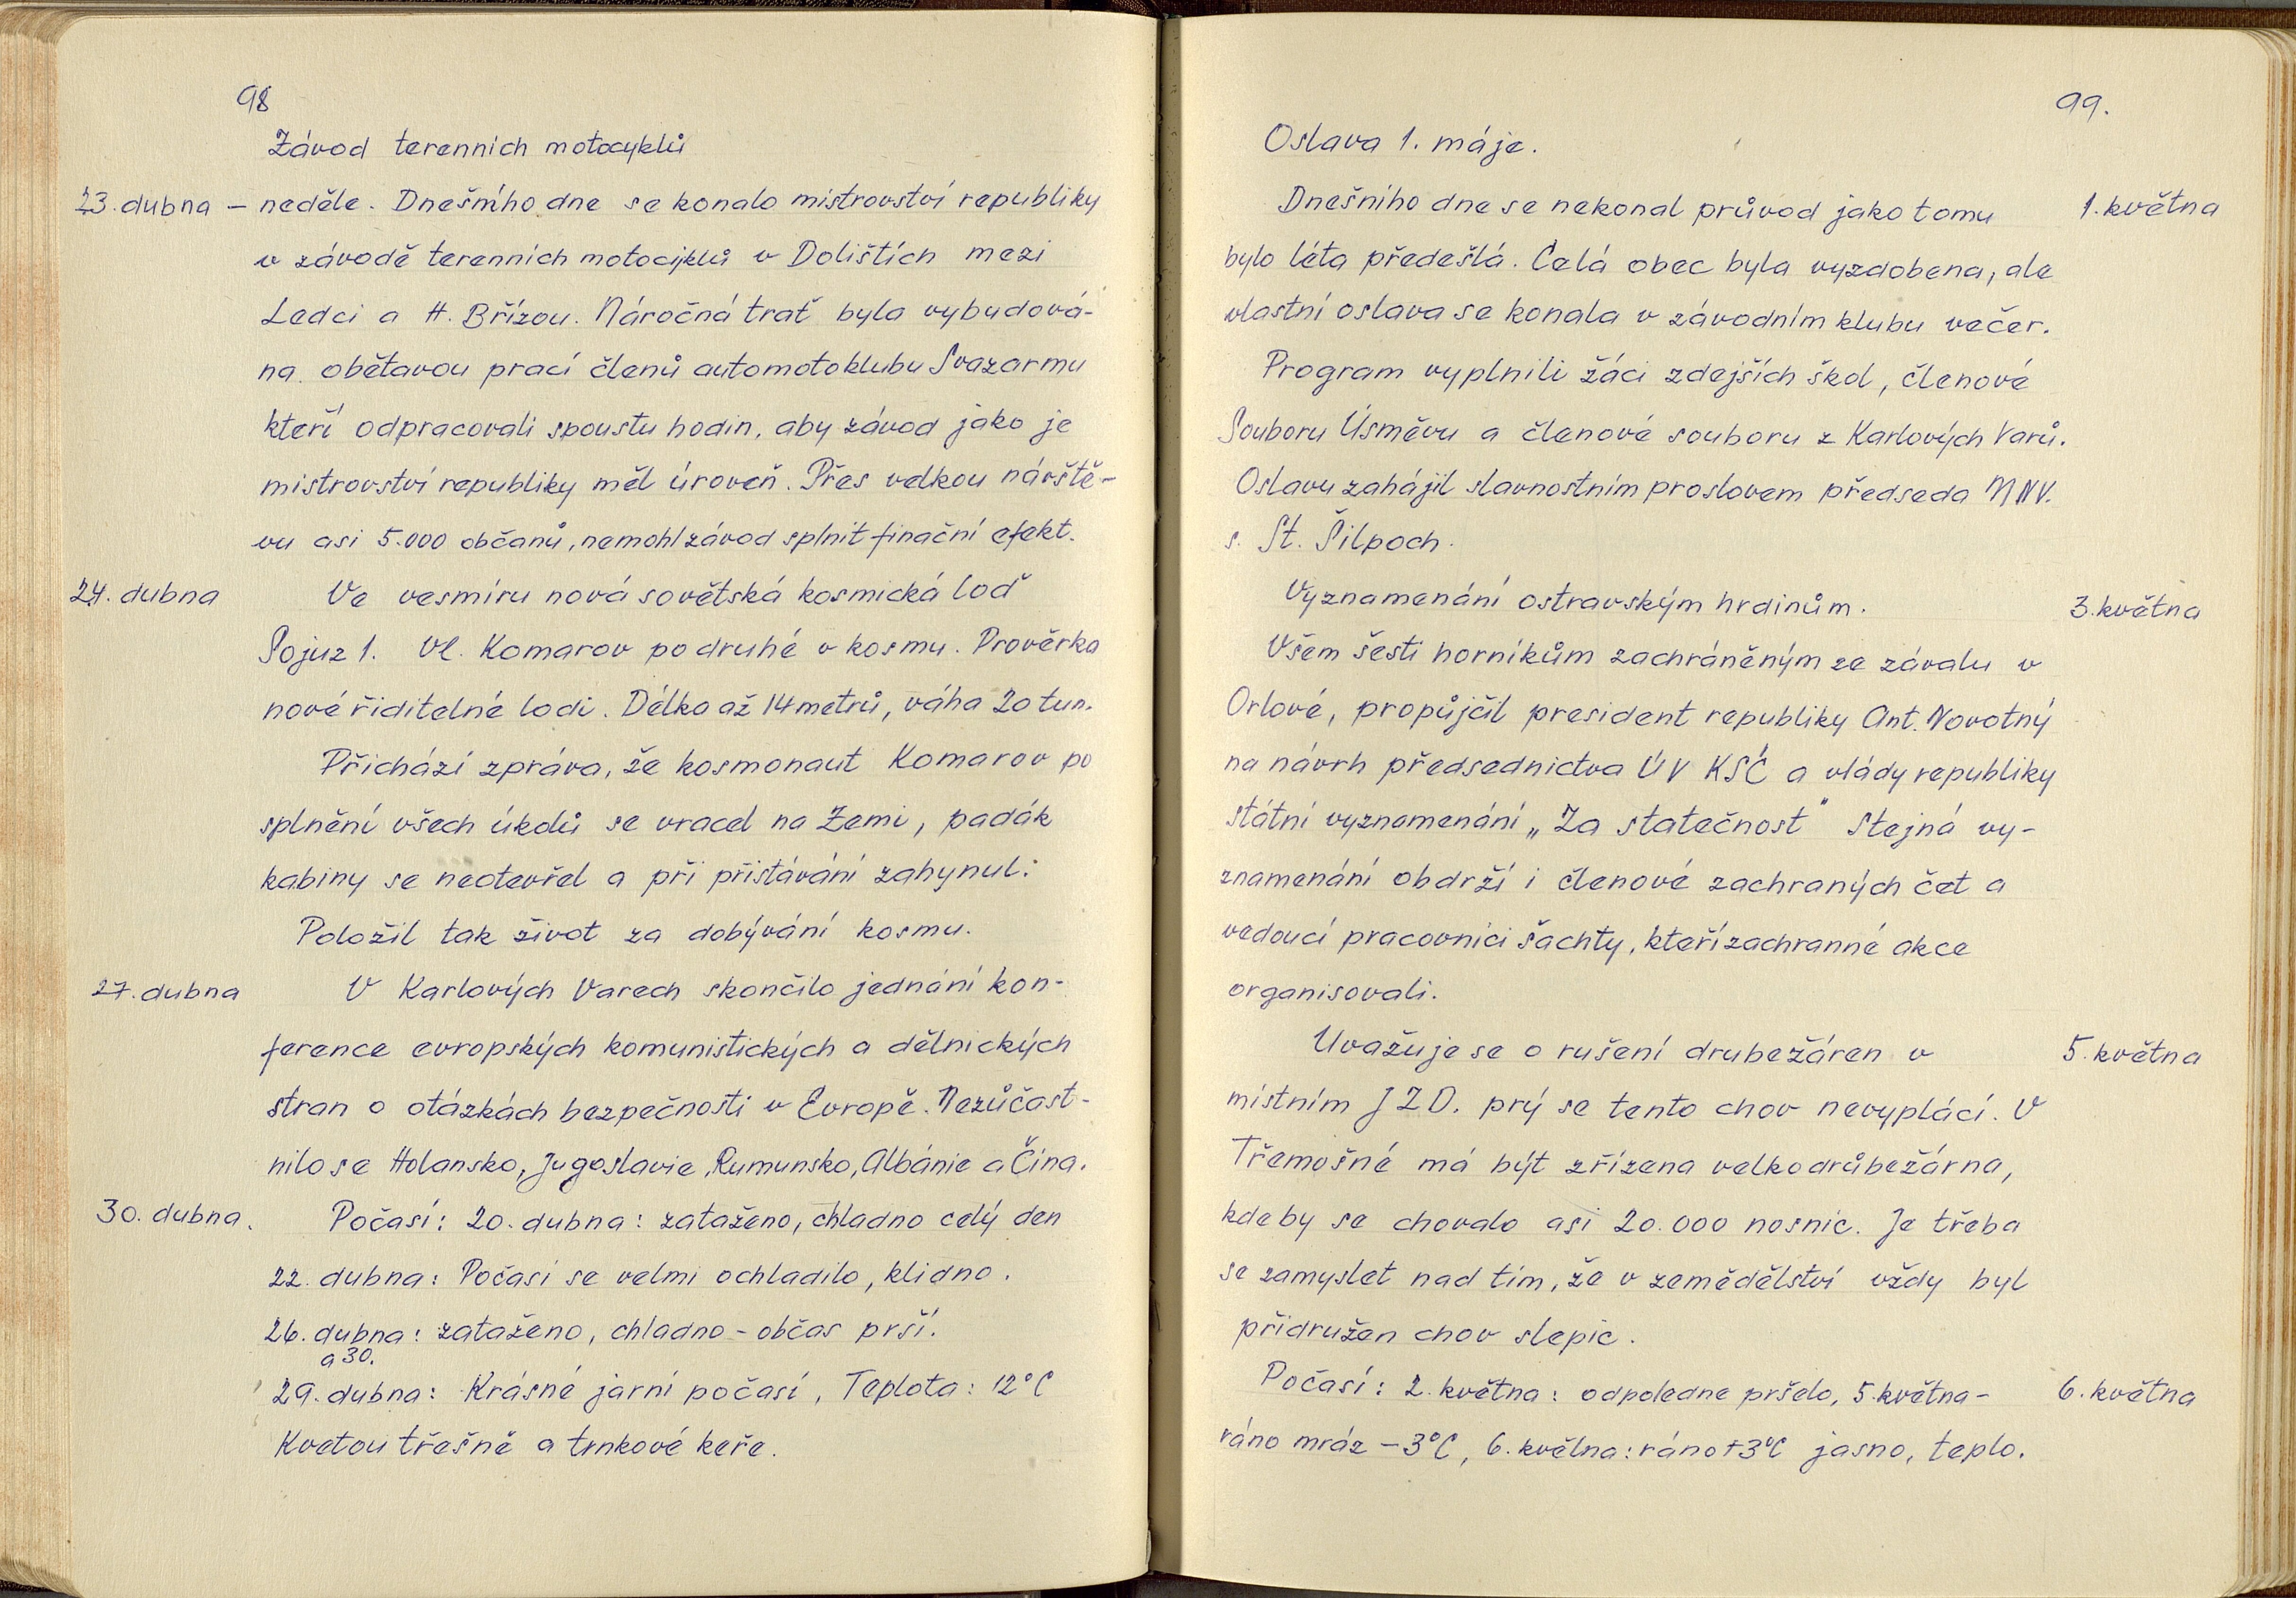 98
Závod terenních motocyklů
23. dubna – neděle. Dnešního dne se konalo mistrovství republiky
v závodě terenních motocyklů v Dolištích mezi
Ledci a H. Břízou. Náročná trať byla vybudová-
na obětavou prací členů automotoklubu Svazarmu
kteří odpracovali spoustu hodin, aby závod jako je
mistrovství republiky měl úroveň. Přes velkou návště-
vu asi 5.000 občanů, nemohl závod splnit finační efekt.
24. dubna Ve vesmíru nová sovětská kosmická loď
Sojuz 1. Vl. Komarov podruhé v kosmu. Prověrka
nové řiditelné lodi. Délka až 14 metrů, váha 20 tun.
Přichází zpráva, že kosmonaut Komarov po
splnění všech úkolů se vracel na Zemi, padák
kabiny se neotevřel a při přistávání zahynul.
Položil tak život za dobývání kosmu.
27. dubna V Karlových Varech skončilo jednání kon-
ference evropských komunistických a dělnických
stran o otázkách bezpečnosti v Evropě. Nezůčast-
nilo se Holansko, Jugoslavie, Rumunsko, Albánie a Čína.
30. dubna. Počasí: 20. dubna: zataženo, chladno celý den
22. dubna: Počasí se velmi ochladilo, klidno.
26. dubna: zataženo, chladno - občas prší.
a 30.
29. dubna: Krásné jarní počasí, Teplota: 12°C
Kvetou třešně a trnkové keře.
99.
Oslava 1. máje.
Dnešního dne se nekonal průvod jako tomu 1. května
bylo léta předešlá. Celá obec byla vyzdobena, ale
vlastní oslava se konala v závodním klubu večer.
Program vyplnili žáci zdejších škol, členové
Souboru Úsměvu a členové souboru z Karlových Varů.
Oslavu zahájil slavnostním proslovem předseda MNV.
s. St. Šilpoch.
Vyznamenání ostravským hrdinům. 3. května
Všem šesti horníkům zachráněným ze závalu v
Orlové, propůjčil president republiky Ant. Novotný
na návrh předsednictva ÚV KSČ a vlády republiky
státní vyznamenání „Za statečnost" Stejná vy-
znamenání obdrží i členové zachraných čet a
vedoucí pracovníci šachty, kteří zachranné akce
organisovali.
Uvažuje se o rušení drubežáren v 5. května
místním JZD. prý se tento chov nevyplácí. V
Třemošné má být zřízena velkodrůbežárna,
kde by se chovalo asi 20.000 nosnic. Je třeba
se zamyslet nad tím, že v zemědělství vždy byl
přidružen chov slepic.
Počasí: 2. května: odpoledne pršelo, 5. května- 6. května
ráno mráz -3°C, 6. května: ráno +3°C jasno, teplo.